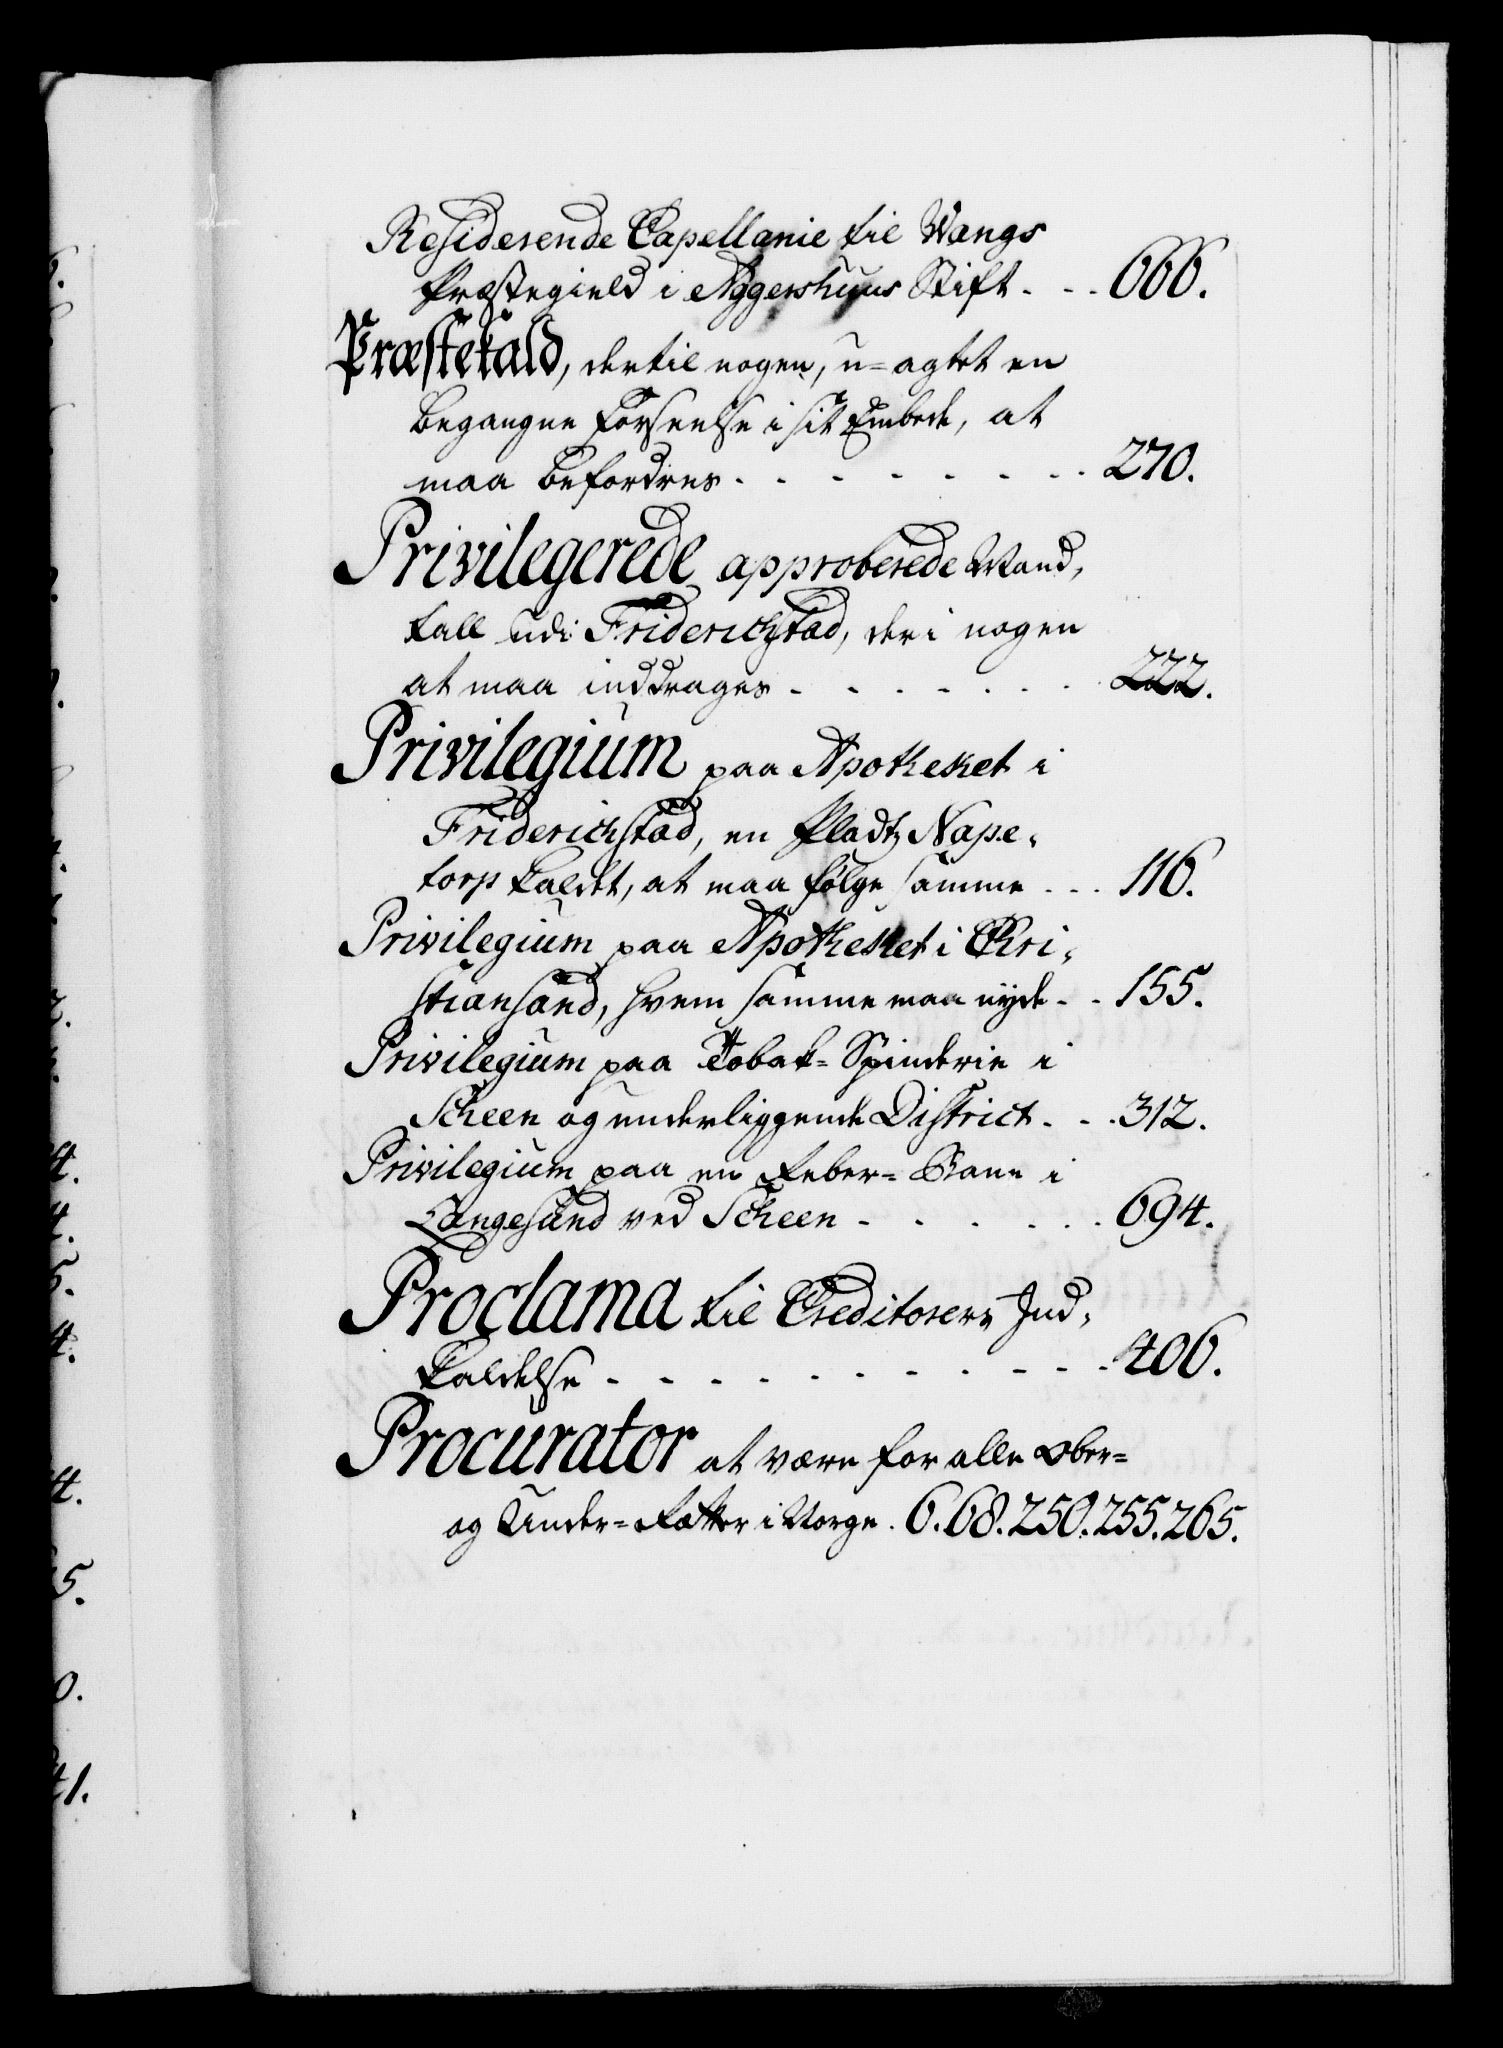 Residerende Capellanie til Wangs
Præstegield i Aggershuus Stift. - - 666.
Præstekald, dertil nogen, u=agtet en
begangne Forseelse i sit Embede, at
maa befordres. - - - - - - - 270.
Privilegerede approberede Mand,
tall udi Friderichstad, der i nogen
at maa inddrages. - - - - - - 222.
Privilegium paa Apotheket i
Friderichstad, en Pladtz Nape-
torp kaldet, at maa følge samme - - - 116.
Privilegium paa Apotheket i Chri-
stiansand, hvem samme maa nyde - - 155.
Privilegium paa Tobak=Spinderie i
Scheen og underliggende District. - - 312.
Privilegium paa en Reber=Bane i
Langesund ved Scheen - - - - - - 694.
Proclama til Creditorers Ind-
kaldelse - - - - - - - - - - 406.
Procurator at være for alle Over=
og Under=Rætter i Norge. 6. 68. 250. 255. 265.
6.
4.
4.
5.
4.
4.
5.
0.
41.